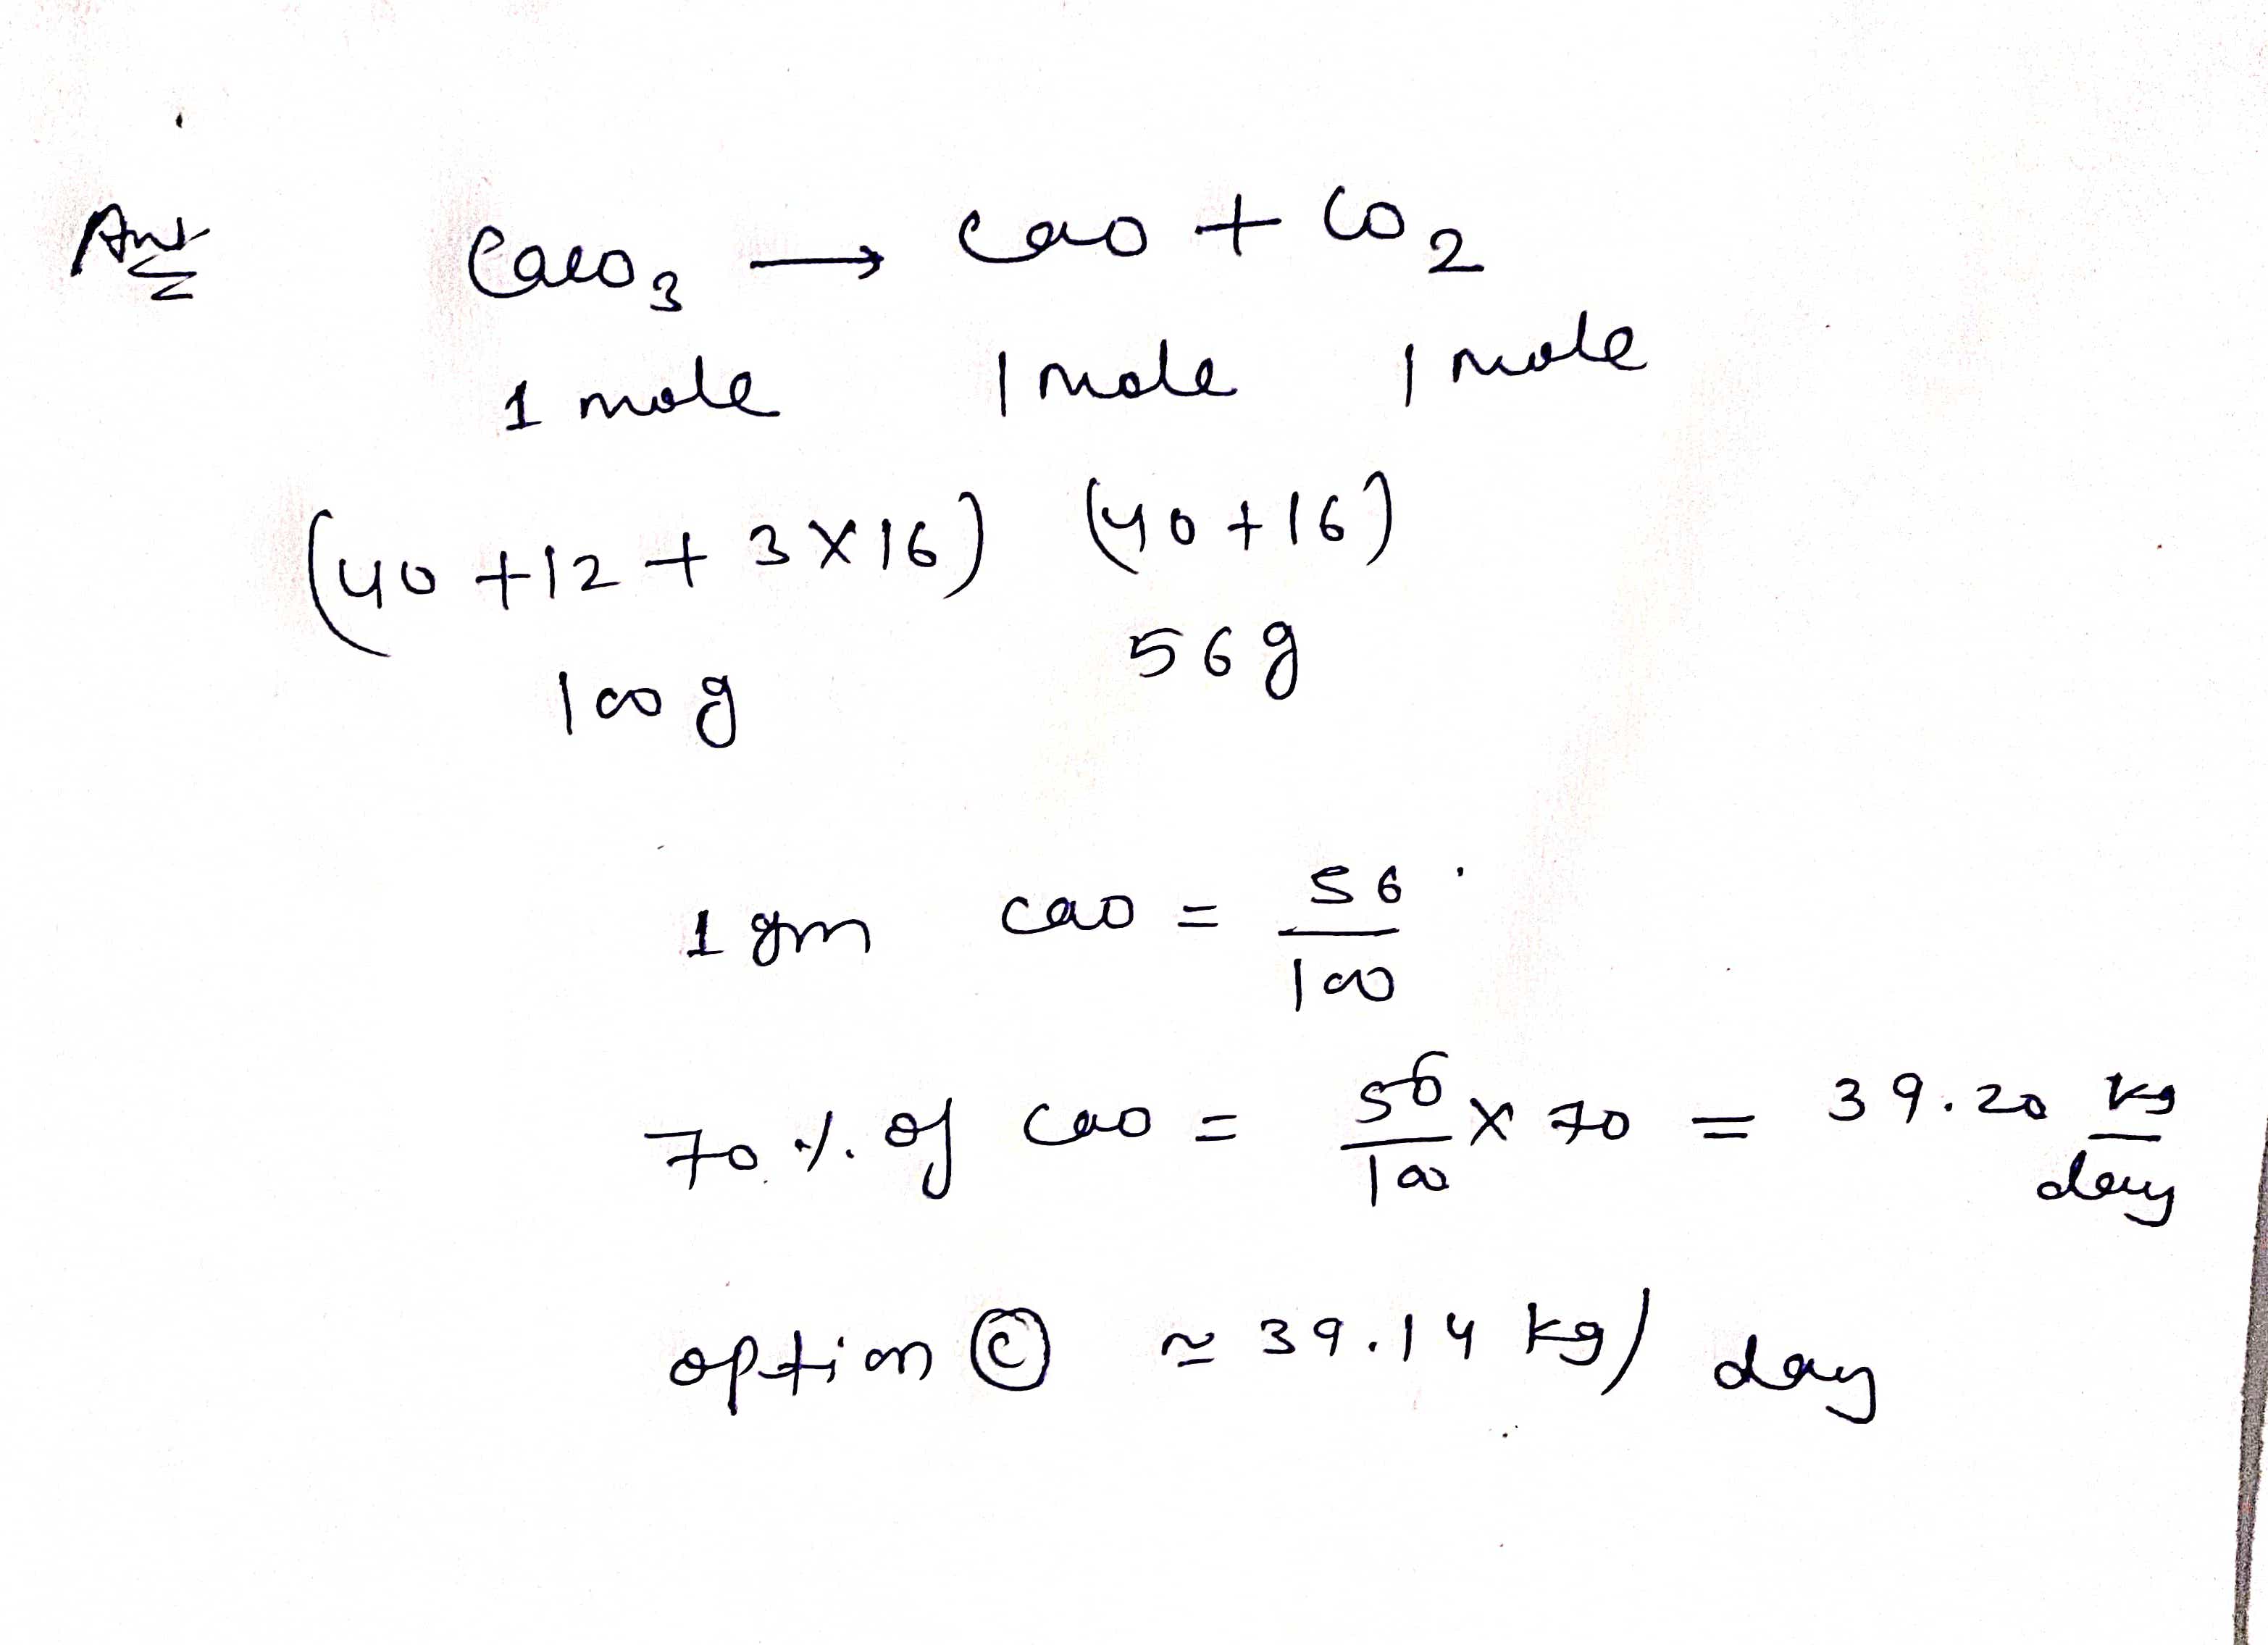 Ans CaCO3 → CaO + CO2
1 mole 1 mole 1 mole
(40 + 12 + 3 X 16) (40 + 16)
100 g 56 g
1 gm CaO = 56/100
70 % of CaO = 56/100 X 70 = 39.20 kg/day
option (C) ≈ 39.14 kg/day